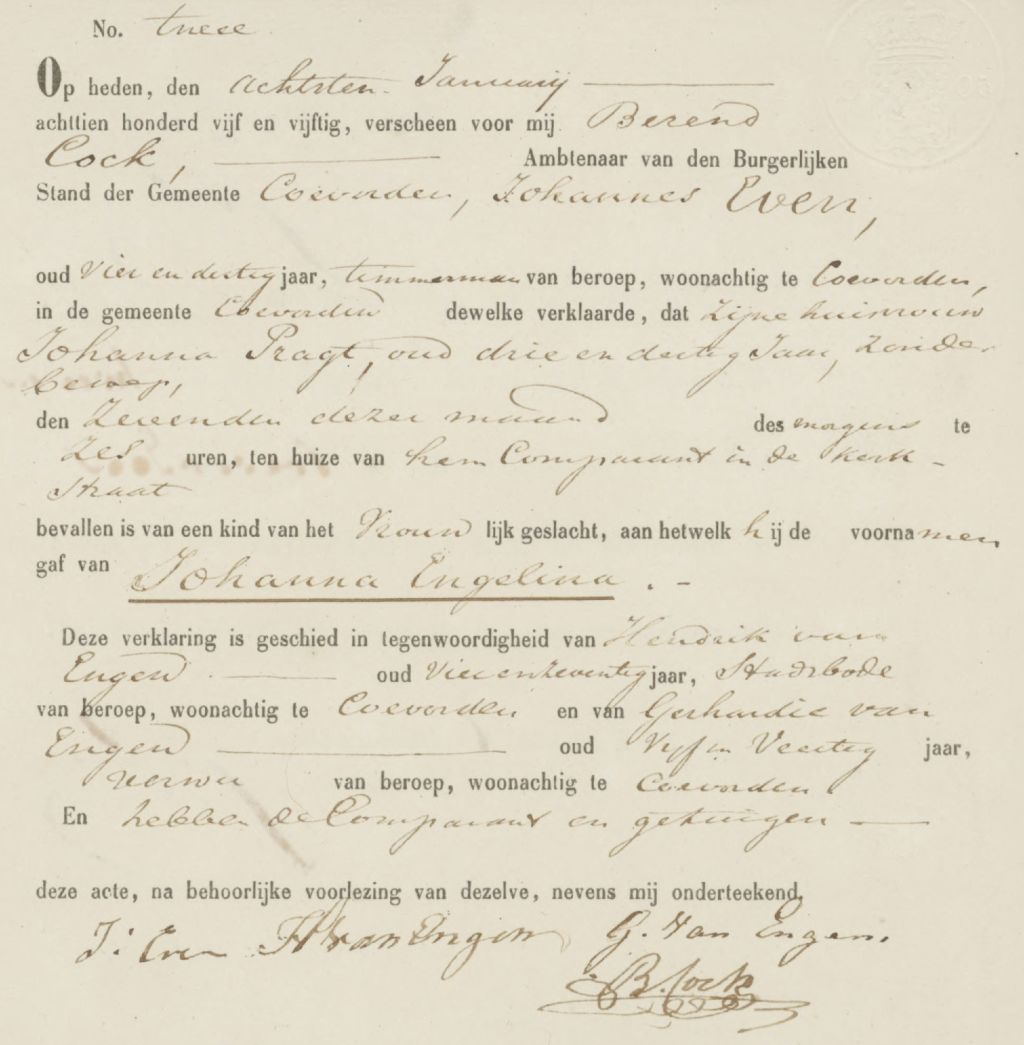 No. twee
Op heden, den achtsten Januarij
achttien honderd vijf en vijftig, verscheen voor mij Berend
Cock, Ambtenaar van den Burgerlijken
Stand der Gemeente Coevorden, Johannes Even,
oud Vier en dertig jaar, timmerman van beroep, woonachtig te Coevorden,
in de gemeente Coevorden dewelke verklaarde, dat Zijne huisvrouw
Johanna Pragt, oud drie en dertig Jaar, Zonder
beroep,
den Zevenden dezer maand des morgens te
Zes uren, ten huize van hem Comparant in de Kerk-
straat
bevallen is van een kind van het Vrouwlijk geslacht, aan hetwelk hij de voornamen
gaf van Johanna Engelina. -
Deze verklaring is geschied in tegenwoordigheid van Hendrik van
Engen oud Vier en Zeventig jaar, Stadsbode
van beroep, woonachtig te Coevorden en van Gerhardie van
Engen oud Vyf en Veertig jaar,
verwer van beroep, woonachtig te Coevorden.
En hebben de Comparant en getuigen
deze acte, na behoorlijke voorlezing van dezelve, nevens mij onderteekend.
J: Even H van Engen G. Van Engen.
B. Cock